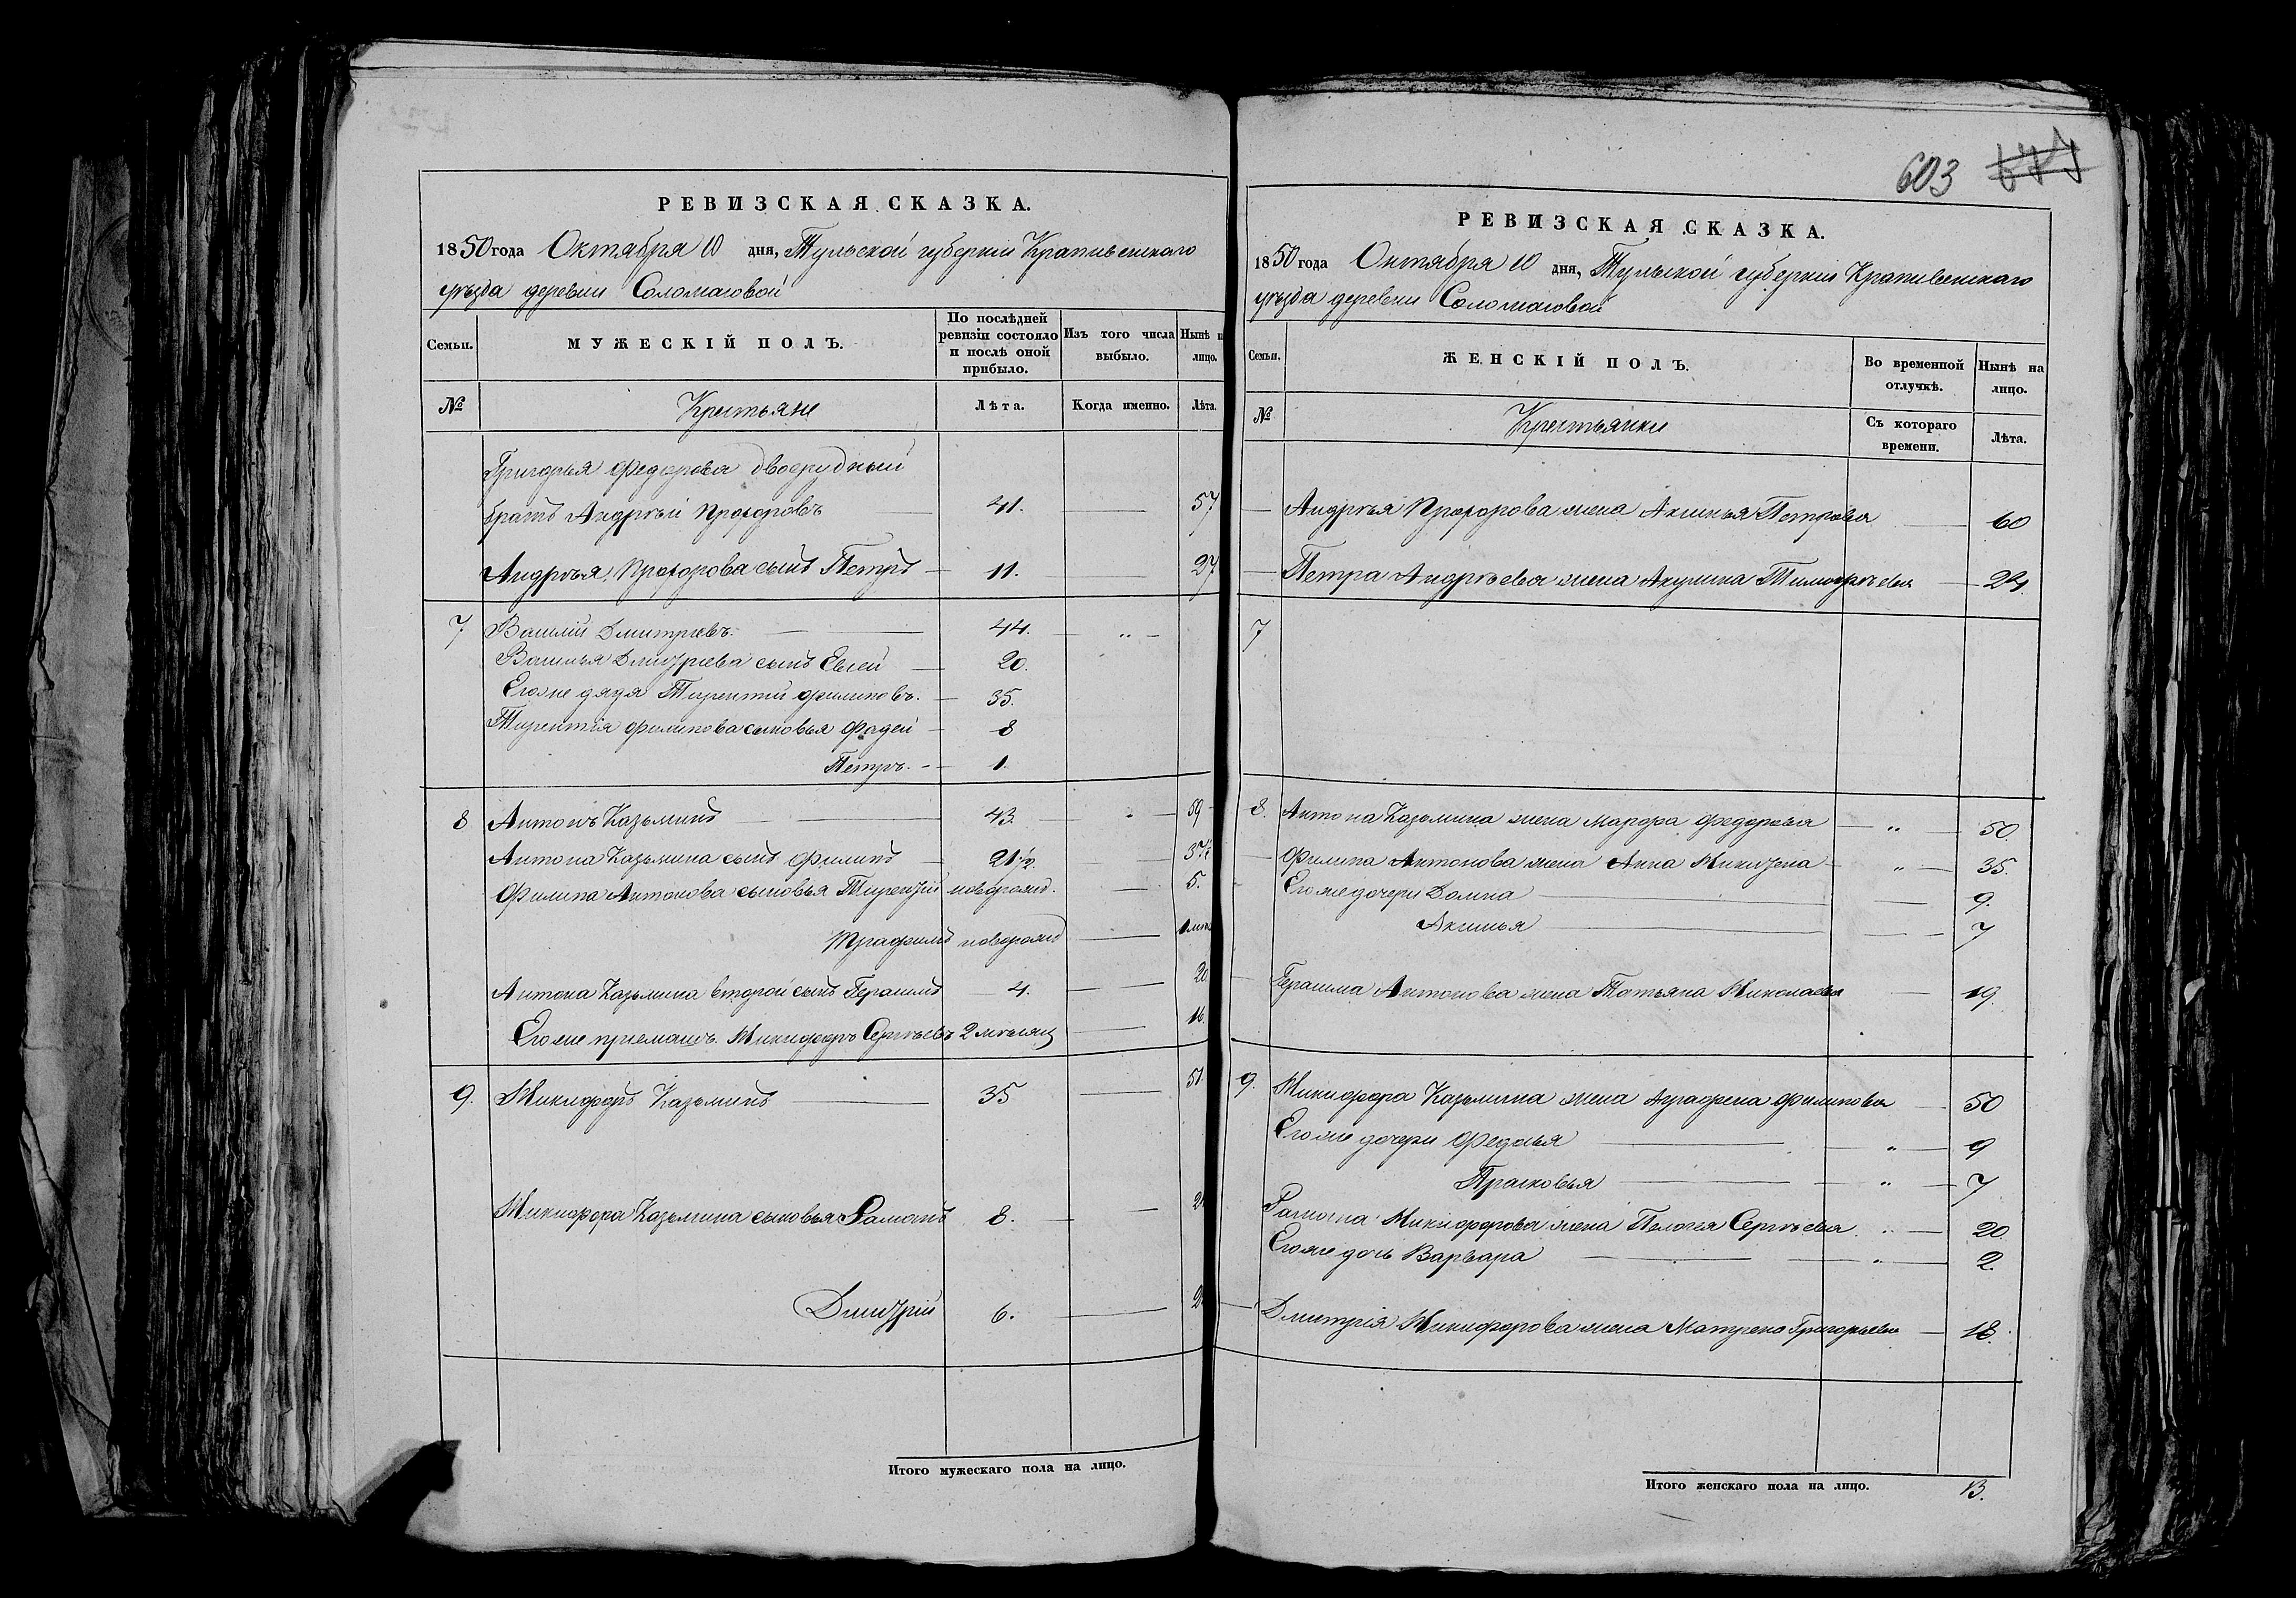 РЕВИЗСКАЯ СКАЗКА.
1850 года Октября 10 дня, Тульской губерніи Крапивенскаго
уѣзда деревни Соломасовой
Семьи.
МУЖЕСКІЙ ПОЛЪ.
По послѣдней ревизіи состояло и послѣ оной прибыло.
Изъ того числа выбыло.
Нынѣ н лицо.
№
Крестьяне
Лѣта.
Когда именно.
Лѣта.
Григорья Федорова двоюродный
братъ Андрѣй Прохоровъ 41. 57
Андрѣя Прохорова сынъ Петръ 11. 27
7 Василій Дмитріевъ. 44. „
Василья Дмитріева сынъ Евсей 20.
Егоже дядя Тирентий Филиповъ. 35.
Тирентія Филипова сыновья Фадей 8
Петръ. 1.
8 Антонъ Казьминъ 43. „ 59
Антона Казьмина сынъ Филипъ 21½ 37½
Филипа Антонова сыновья Тирентій новорожд. 5.
Трафимъ новорожд
Антона Казьмина второй сынъ Герасимъ 4. 20
Егоже приемышъ Микифоръ Сергѣевъ 2 мѣсяц 16.
9. Микифоръ Казьминъ 35 51
Микифора Казьмина сыновья Самонъ 8. 2
Дмитрій 6. 2
Итого мужескаго пола на лицо.
603
РЕВИЗСКАЯ СКАЗКА.
1850 года Октября 10 дня, Тульской губерніи Крапивенскаго
уѣзда деревни Соломасовой
Семьи.
ЖЕНСКІЙ ПОЛЪ.
Во временной отлучкѣ.
Нынѣ на лицо.
№
Крестьянки
Съ котораго времени.
Лѣта.
Андрѣя Прохорова жена Аксинья Петрова 60
Петра Андрѣева жена Акулина Тимофѣева 24.
7
8. Антона Казьмина жена Марфа Федорова „ 50.
Филипа Антонова жена Анна Микитена „ 35.
Егоже дочери Домна 9.
Аксинья 7
Герасима Антонова жена Татьяна Миколаева 19.
9. Микифора Казьмина жена Аграфена Филипова 50
Егоже дочери Федосья „ 9
Прасковья „ 7
Самона Микифорова жена Пелагея Сергѣева „ 20
Егоже дочь Варвара „ 2.
Дмитрія Микифорова жена Матрена Григорьева 18.
Итого женскаго пола на лицо. 13.